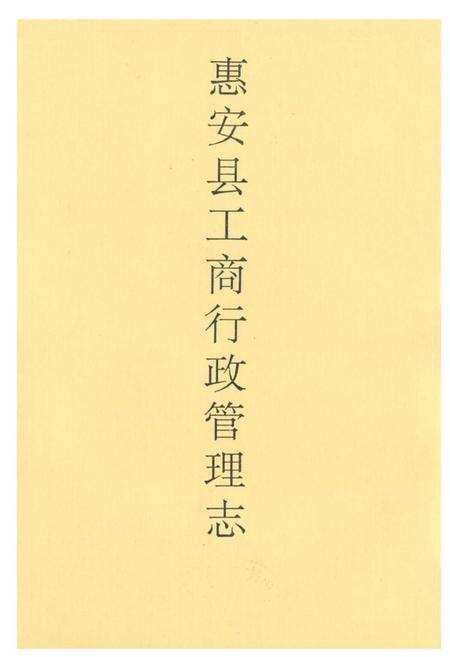 惠安县工商行政管理志